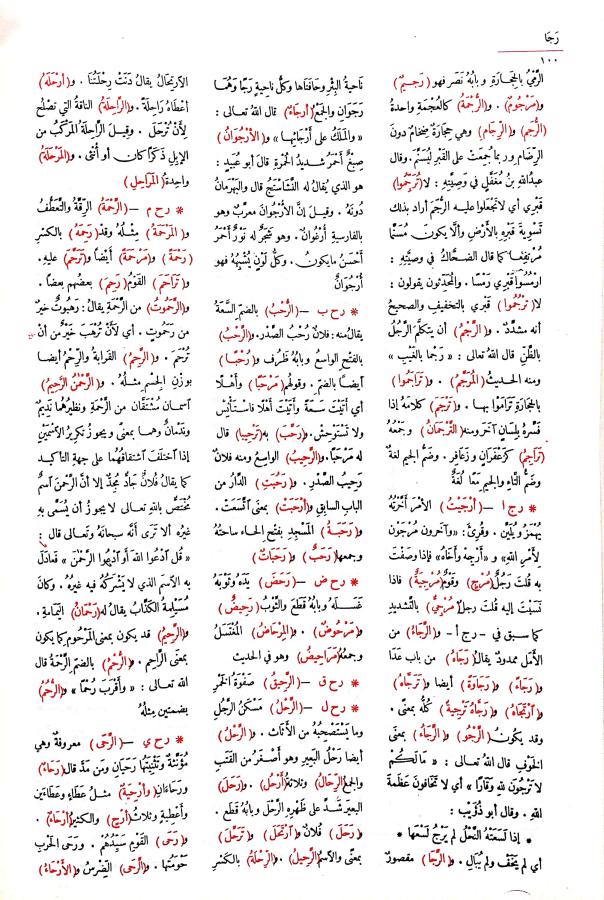 رَجَا
١٠٠
الرَّمْيُ بِالحِجَارَةِ وبَابُهُ نَصَرَ فهو (رَجِيمٌ)
و(مَرْجُومٌ) . و(الرُّجْمَةُ) كالعُجْمَةِ واحدةُ
(الرُّجَمِ) و(الرِّجَامِ) وهي حِجَارَةٌ ضِخَامٌ دُونَ
الرِّضَامِ وربما جُمِعَتْ على القَبْرِ لِيُسَنَّمَ . وقال
عبدُ اللهِ بنُ مُغَفَّلٍ في وَصِيَّتِهِ : لا (تُرَجِّمُوا)
قَبْرِي أي لا تَجْعَلُوا عليه الرُّجَمَ أراد بذلك
تَسْوِيَةَ قَبْرِهِ بالأَرْضِ وألَّا يكونَ مُسَنَّمًا
مُرْتَفِعًا كما قال الضحَّاكُ في وصيَّتِهِ :
ارْمُسُوا قَبْرِي رَمْسًا . والمُحَدِّثون يقولون :
لا (تَرْجُمُوا) قَبْرِي بالتخفيفِ والصحيحُ
أنه مشدَّدٌ . و(الرَّجْمُ) أن يتكلَّمَ الرَّجُلُ
بالظَّنِّ قال اللهُ تعالى : « رَجْمًا بالغَيْبِ »
ومنه الحديثُ (المُرَجَّمُ) . و(تَرَاجَمُوا)
بالحِجَارَةِ تَرَامَوْا بها . و(تَرْجَمَ) كلامَهُ إذا
فَسَّرَهُ بِلِسَانٍ آخَرَ ومنه (التَّرْجُمَانُ) وجَمْعُهُ
(تَرَاجِمُ) كزَعْفَرَانٍ وزَعَافِرَ . وضَمُّ الجيمِ لغةٌ
وضَمُّ التَّاءِ والجيمِ مَعًا لُغَةٌ
* ر ج ا – (أَرْجَيْتُ) الأَمْرَ أَخَّرْتُهُ
يُهْمَزُ ويُلَيَّنُ . وقُرِئَ : «وآخَرون مُرْجَوْنَ
لأَمْرِ اللهِ» و« أَرْجِهْ وأَخَاهُ» فإذا وصَفْتَ
به قُلتَ رَجُلٌ (مُرْجٍ) وقَوْمٌ (مُرْجِيَةٌ) فإذا
نَسَبْتَ إليه قُلتَ رجلٌ (مُرْجِيٌّ) بالتشديدِ
كما سبق في – ر ج أ – و(الرَّجَاءُ) من
الأَمَلِ ممدودٌ يقالُ (رَجَاهُ) من باب عَدَا
و(رَجَاءً) و(رَجَاوَةً) أيضا و(تَرَجَّاهُ)
و(ارْتَجَاهُ) و(رَجَّاهُ تَرْجِيَةً) كُلُّهُ بمعنًى .
وقد يكونُ (الرَّجْوُ) و(الرَّجَاءُ) بمعنَى
الخَوْفِ قال اللهُ تعالى : « مَا لَكُمْ
لا تَرْجُونَ للهِ وَقَارًا » أي لا تَخَافُونَ عَظَمَةَ
اللهِ . وقال أبو ذُؤَيْبٍ :
* إذا لَسَعَتْهُ النَّحْلُ لم يَرْجُ لَسْعَهَا *
أي لم يَخَفْ ولم يُبَالِ . و(الرَّجَا) مقصورٌ
ناحيةُ البِئْرِ وحَافَتَاها وكلُّ ناحيةٍ رَجًا وهُمَا
رَجَوَانِ والجمعُ (أَرْجَاءٌ) قال اللهُ تعالى :
« والمَلَكُ على أَرْجَائِها » و(الأُرْجُوَانُ)
صِبْغٌ أَحْمَرُ شديدُ الحُمْرَةِ قال أبو عُبيد :
هو الذي يُقالُ له النَّشَاسْتَجُ قال والبَهْرَمَانُ
دُونَهُ . وقيـلَ إنَّ الأُرْجُوَانَ معرَّبٌ وهو
بالفارسيةِ أُرْغُوَانٌ . وهو شجَرٌ له نَوْرٌ أَحْمَرُ
أَحْسَنُ ما يكون . وكلُّ لَوْنٍ يُشْبِهُهُ فهو
أُرْجُوَانٌ
* ر ح ب – (الرُّحْبُ) بالضمِّ السَّعَةُ
يقالُ منه : فلانٌ رُحْبُ الصَّدْرِ . و(الرَّحْبُ)
بالفتْحِ الواسعُ وبابُهُ ظَرُفَ و(رُحْبًا)
أيضا بالضمِّ . وقولُهم (مَرْحَبًا) وأَهْلًا
أي أَتَيْتَ سَعَةً وأَتَيْتَ أَهْلًا فاسْتَأْنِسْ
ولا تَسْتَوْحِشْ . و(رَحَّبَ) به (تَرْحِيبا) قال
له مَرْحَبًا . و(الرَّحِيبُ) الواسِعُ ومنه فلانٌ
رَحِيبُ الصَّدْرِ . و(رَحُبَتِ) الدَّارُ من
البابِ السابقِ و(أَرْحَبَتْ) بمعنَى اتَّسَعَتْ .
و(رَحَبَةُ) المَسْجِدِ بفتْحِ الحاءِ ساحَتُهُ
وجمعُها (رَحَبٌ) و(رَحَبَاتٌ)
* ر ح ض – (رَحَضَ) يَدَهُ وثَوْبَهُ
غَسَـلَهُ وبابُهُ قَطَعَ والثَّوْبُ (رَحِيضٌ)
و(مَرْحُوضٌ) . و(المِرْحَاضُ) المُغْتَسَلُ
وجمعُهُ (مَرَاحِيضُ) وهو في الحديث
* ر ح ق – (الرَّحِيقُ) صَفْوَةُ الخَمْرِ
* ر ح ل – (الرَّحْلُ) مَسْكَنُ الرَّجُلِ
وما يَسْتَصْحِبُهُ من الأَثَاثِ . و(الرَّحْلُ)
أيضا رَحْلُ البَعِيرِ وهو أَصْغَرُ من القَتَبِ
والجمعُ (الرِّحَالُ) وثلاثةُ (أَرْحُلٍ) . و(رَحَلَ)
البعيرَ شَدَّ على ظَهْرِهِ الرَّحْلَ وبابُهُ قَطَع .
و(رَحَلَ) فُلَانٌ و(ارْتَحَلَ) و(تَرَحَّلَ)
بمعنًى والاسمُ (الرَّحِيلُ) . و(الرِّحْلَةُ) بالكَسْرِ
الاَرْتِحَالُ يقالُ دَنَتْ رِحْلَتُنَا . و(أَرْحَلَهُ)
أعْطَاهُ رَاحِلَةً . و(الرَّاحِلَةُ) الناقةُ التي تَصْلُحُ
لِأَنْ تُرْحَلَ . وقيـلَ الرَّاحِلَةُ المَرْكَبُ من
الإِبِلِ ذَكَرًا كان أو أُنْثَى . و(المَرْحَلَةُ)
واحدةُ (المَرَاحِلِ)
* ر ح م – (الرَّحْمَةُ) الرِّقَّةُ والتَّعَطُّفُ
و(المَرْحَمَةُ) مِثْلُهُ وقد (رَحِمَهُ) بالكسرِ
(رَحْمَةً) و(مَرْحَمَةً) أيضا و(تَرَحَّمَ) عليه .
و(تَرَاحَمَ) القَوْمُ (رَحِمَ) بعضُهم بعضا .
و(الرَّحَمُوتُ) من الرَّحْمَةِ يقالُ : رَهَبُوتٌ خيرٌ
من رَحَمُوتٍ . أي لَأَنْ تُرْهَبَ خَيْرٌ من أنْ
تُرْحَمَ . و(الرَّحِمُ) القَرَابةُ والرِّحْمُ أيضا
بوزنِ الجِسْمِ مِثْلُهُ . و(الرَّحْمٰنُ الرَّحِيمُ)
اسمان مُشْتَقَّان من الرَّحْمَةِ ونظيرُهُما نَدِيمٌ
ونَدْمَانُ وهما بمعنًى ويجوزُ تكريرُ الاسمَيْنِ
إذا اخْتَلَفَ اشْتِقَاقُهُما على جهةِ التأكيد
كما يقالُ فُلانٌ جَادٌّ مُجِدٌّ إلا أنَّ الرَّحمنَ اسمٌ
مُخْتَصٌّ باللهِ تعالى لا يجوزُ أن يُسَمَّى به
غيرُهُ ألا تَرَى أنَّه سبحانَهُ وتعالى قال :
« قُلِ ادْعُوا اللهَ أوِ ادْعُوا الرَّحْمٰنَ » فعَادَلَ
به الاسمَ الذي لا يَشْرَكُهُ فيه غيرُهُ . وكان
مُسَيْلِمةُ الكَذَّابُ يقالُ له (رَحْمَانُ) اليَمَامَةِ .
و(الرَّحِيمُ) قد يكون بمعنَى المَرْحُومِ كما يكونُ
بمعنَى الرَّاحِمِ . و(الرُّحْمُ) بالضمِّ الرَّحْمَةُ قال
الله تعالى : « وأَقْرَبَ رُحْمًا » و(الرُّحُمُ)
بضمتينِ مِثْلُهُ
* ر ح ي – (الرَّحَى) معروفةٌ وهي
مُؤَنَّثةٌ وتَثْنِيَتُها رَحَيَانِ ومَنْ مَدَّ قال (رَحَاءٌ)
ورَحَاءَانِ و(أَرْحِيَةٌ) مثلُ عَطَاءٍ وعَطَاءَيْنِ
وأَعْطِيةٍ وثلاثُ (أَرْحٍ) والكثيرُ (أَرْحَاءٌ) .
و(رَحَى) القَوْمِ سَيِّدُهُمْ . ورَحَى الحَرْبِ
حَوْمَتُها . و(الرَّحَى) الضِّرْسُ و(الأَرْحَاءُ)